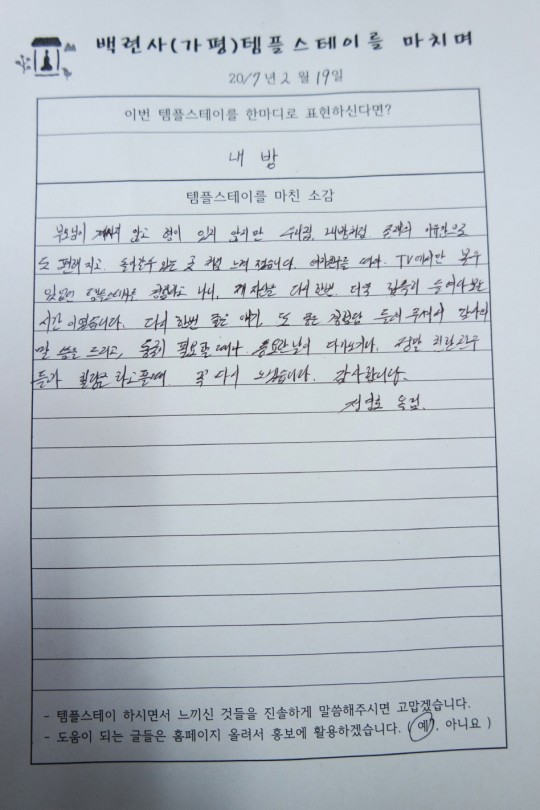 백련사(가평)템플스테이를 마치며
2017년 2월 19일
이번 템플스테이를 한마디로 표현하신다면?
내 방
템플스테이를 마친 소감
부모님이 계시지 않고 형이 있지 않지만 우리집, 내방처럼 존재의 이유만으로
도 편해지고 돌아갈수 있는 곳 처럼 느껴졌습니다. TV에서만 볼수
있었던 템플스테이를 경험하고 나니, 제 자신을 다시 한번, 더욱 깊숙히 들여다보는
시간이었습니다. 다시 한번 좋은 얘기, 또 좋은 경험담 들려 주셔서 감사의
말씀을 드리고, 필요할 때나 중요한 날이 다가오거나, 정말 친한 친구
들과 힐링을 하고플때 꼭 다시 오겠습니다. 감사합니다.
올림.
- 템플스테이 하시면서 느끼신 것들을 진솔하게 말씀해주시면 고맙겠습니다.
- 도움이 되는 글들은 홈페이지 올려서 홍보에 활용하겠습니다. ( 예, 아니요 )